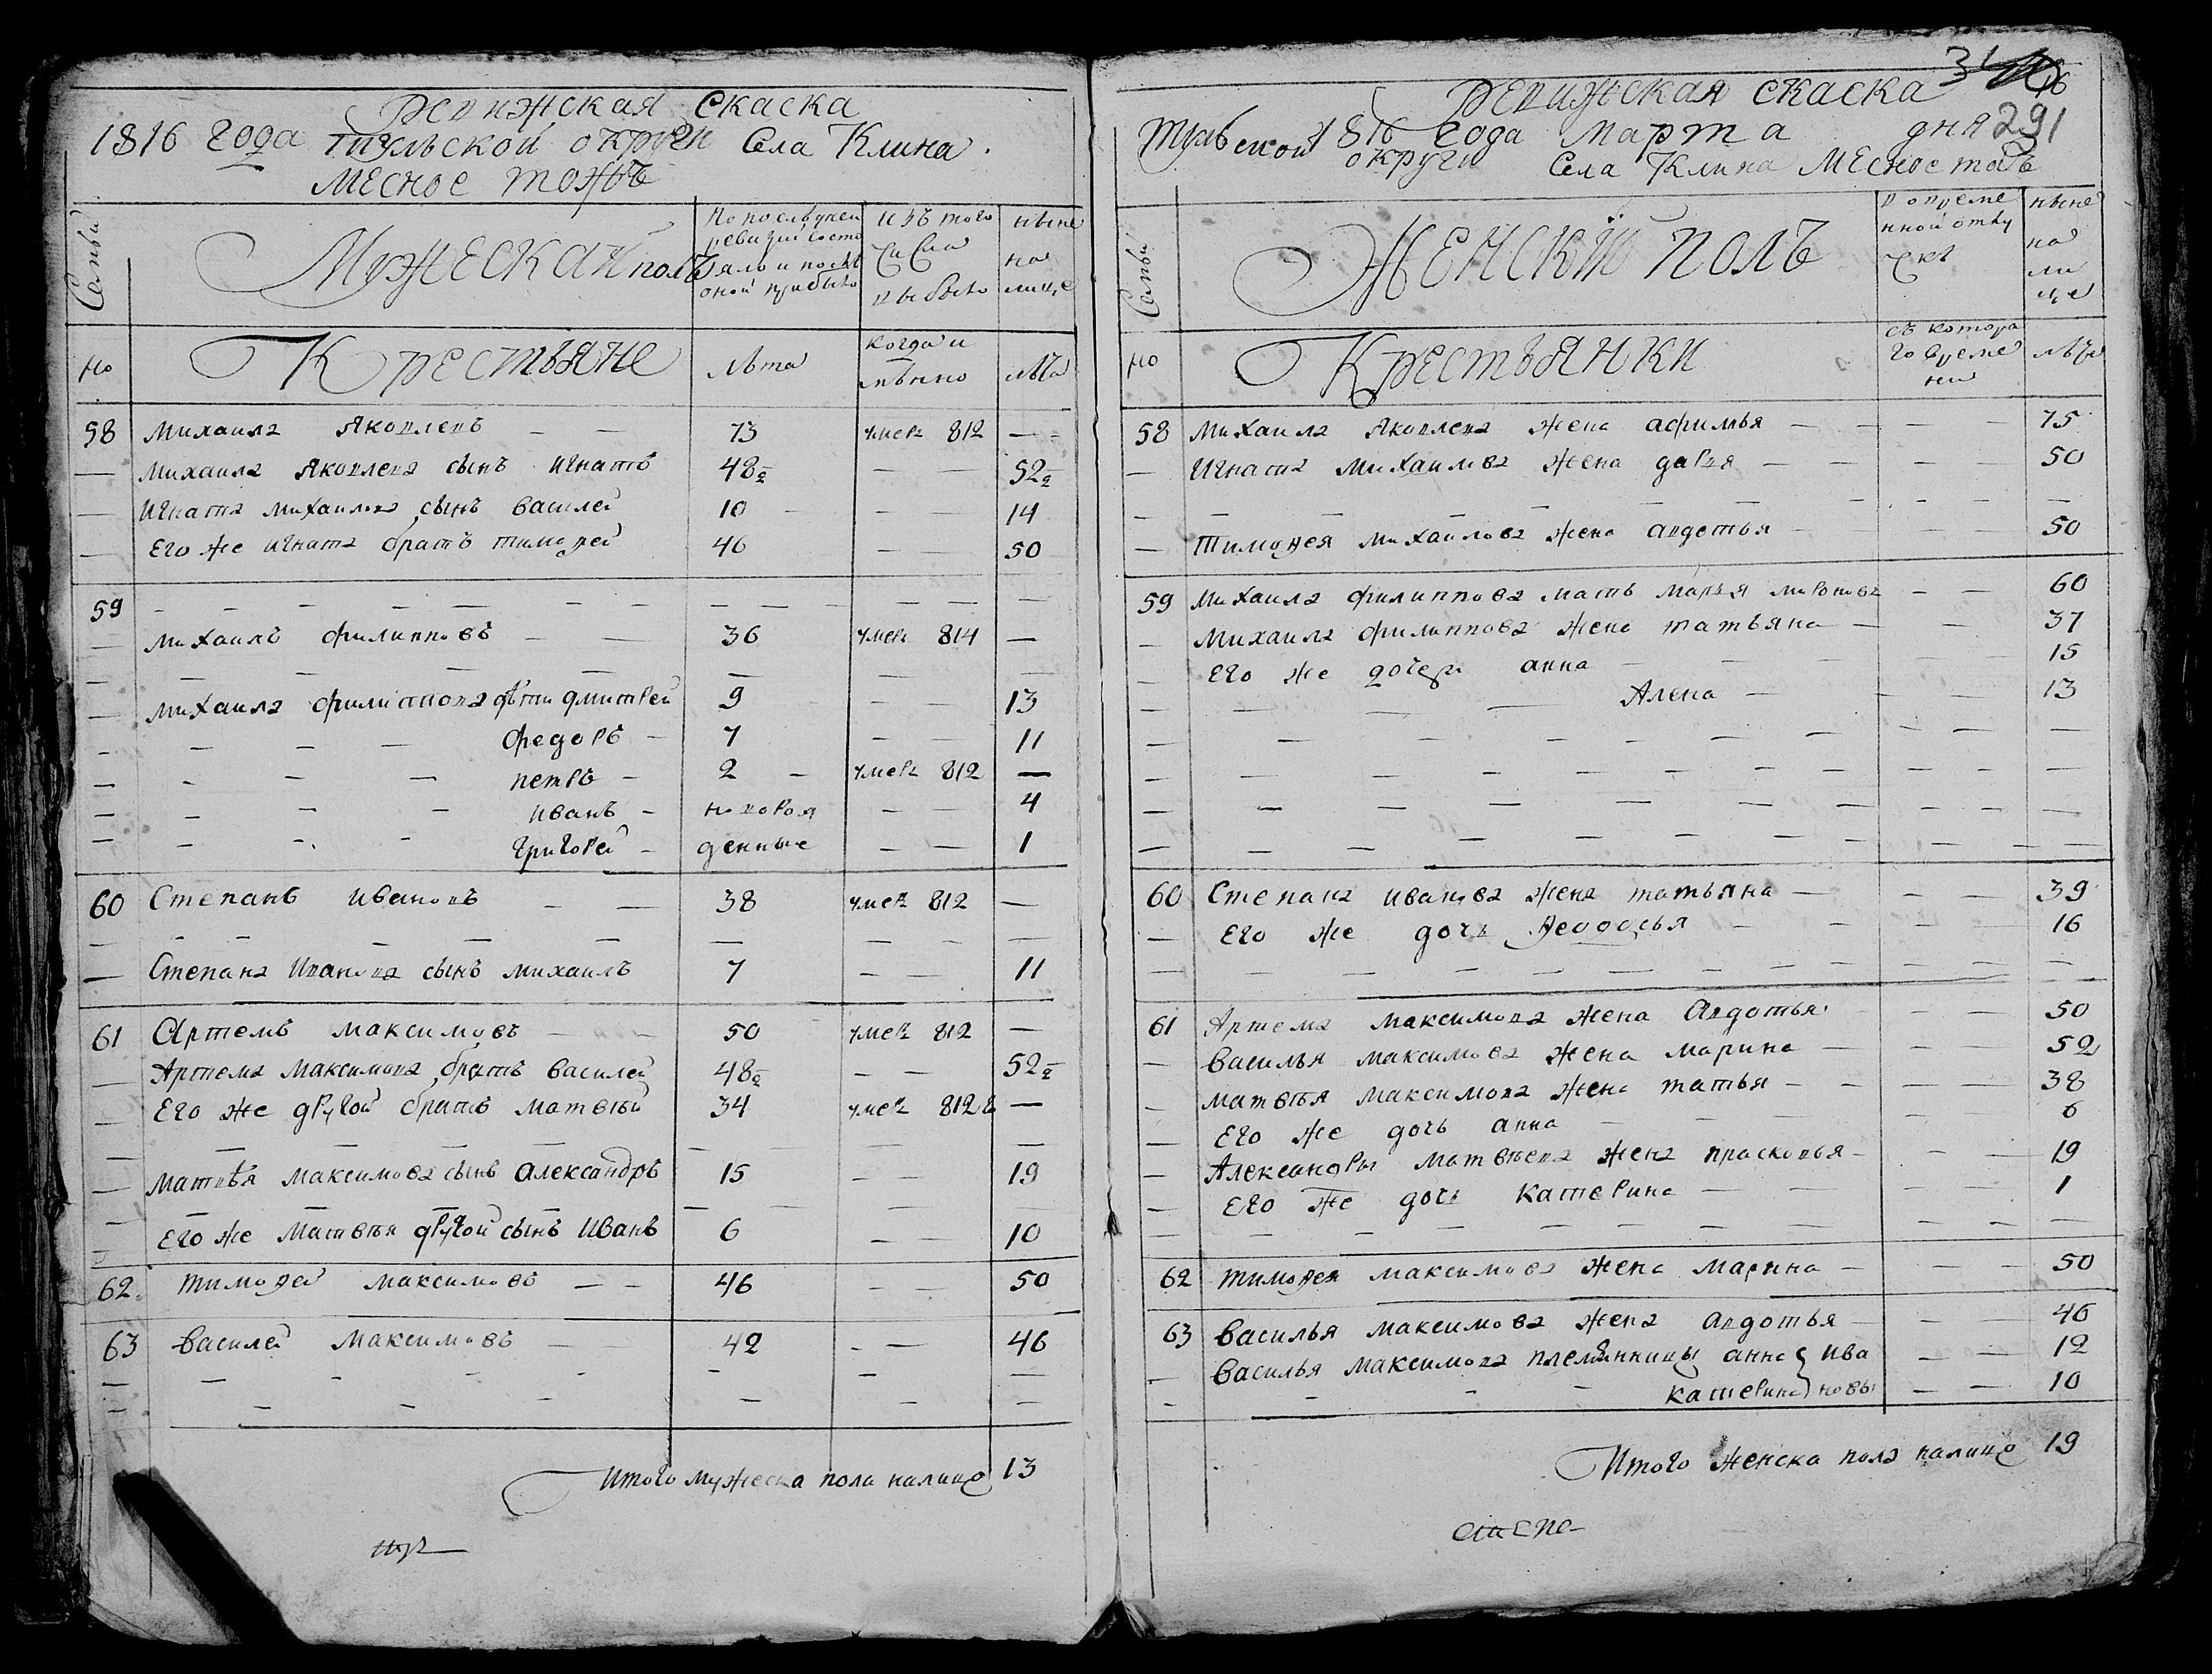 Ревижская скаска
1816 года тульской округи Села Клина.
Месное тожъ
Семьи
Мужеской полъ
По последней
ревизии состо
яло и после
оной прибыло
изъ того
числа
выбыло
ныне
на
лице
но
Крестьяне
лета
когда и
имянно
лета
58 Михаила Яковлевъ — — 73 умеръ 812 —
— Михаила Яковлева сынъ Игнатъ 48½ — — 52½
— Игната Михаилова сынъ Василей 10 — — 14
— Его же Игната братъ тимофей 46 — — 50
59 — — — — — — — — — — —
— Михаилъ филипповъ — — 36 умеръ 814 —
— — — — — — —
— Михаила филиппова дѣти дмитрей 9 — — 13
— — — — федоръ — 7 — — 11
— — — — петръ — 2 — умеръ 812 —
— — — — иванъ — новорож — — 4
— — — — григорей — денные — — 1
60 Степанъ ивановъ — — 38 умеръ 812 —
— — — — — — — — — —
— Степана Иванова сынъ михаилъ 7 — — 11
61 Артемъ максимовъ — — 50 умеръ 812 —
— Артема Максимова братъ Василей 48½ — — 52½
— Его же другой братъ матвѣй 34 умеръ 812 —
— — — — — — — —
— Матвѣя Максимова сынъ александръ 15 — — 19
— — — — — — — — —
— Его же Матвѣя другой сынъ Иванъ 6 — — 10
62. тимофей максимовъ — — 46 — — 50
63 Василей Максимовъ — 42 — — 46
— — — — — — — — —
— — — — — — —
Итого мужеска пола налицо 13
Ревижская скаска
1816 года марта дня 291
Тульской округи Села Клина Месное тожъ
Семьи
Женский полъ
во време
нной отлу
чке
ныне
на
ли
це
но
Крестьянки
съ котора
го време
ни
лета
58 Михаила Яковлева жена афимья — — — 75
— Игната Михаилова жена дарья — — — 50
— — — — — — — — — —
— Тимофея Михаилова жена авдотья — — — 50
59 Михаила филиппова мать Марья миронова — — 60
— Михаила филиппова жена татьяна — — 37
— Его же дочери анна — — — 15
— — — — Алена — — — 13
— — — — — — — — — — —
— — — — — — — — — — —
— — — — — — — — — — —
— — — — — — — — — — —
60 Степана иванова жена татьяна — — — 39
— Его же дочь Феодосья — — — 16
— — — — — — — — — — —
61 Артема максимова жена Авдотья — — 50
— Василья максимова жена марина — — — 52
— матвѣя максимова жена татья — — — 38
— Его же дочь анна — — — 6
— Александры матвеева жена прасковья — — — 19
— Его же дочь катерина — — — 1
— — — — — — — — — — —
62 тимофея максимова жена марина — — — 50
63 Василья максимова жена авдотья — — — 46
— Василья максимова племянницы анна } ива — — 12
— — — — катерина } новы — — 10
Итого женска пола налицо 19